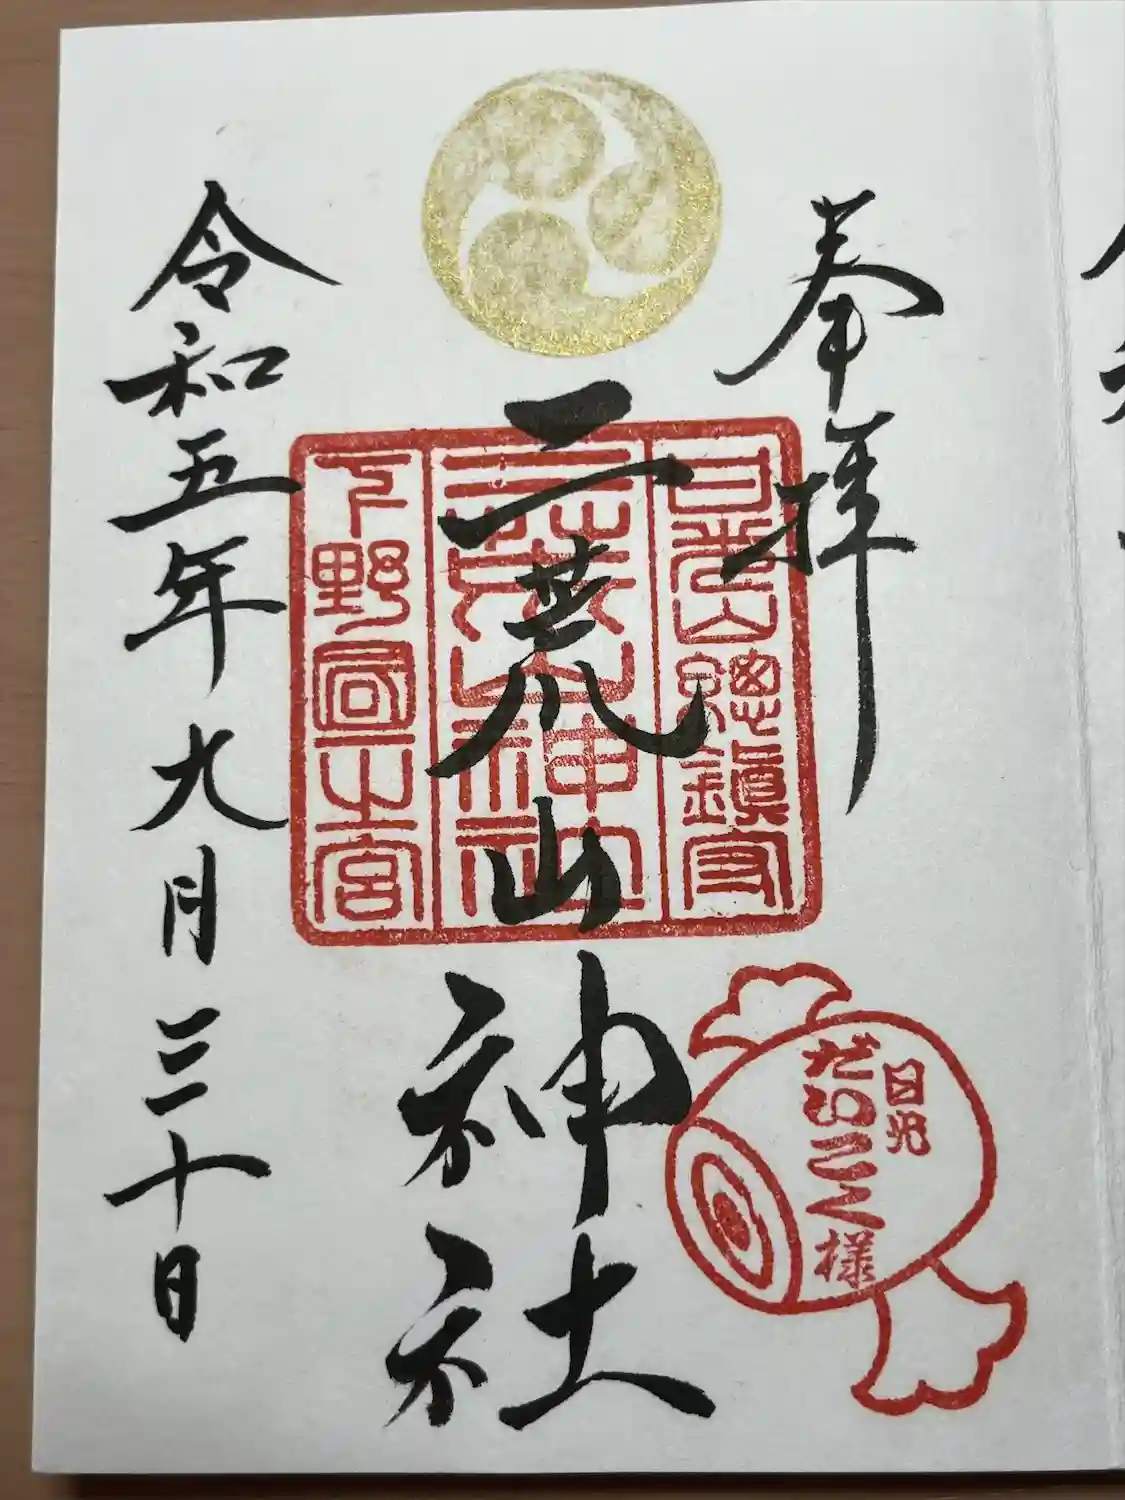 奉拝
日光山總鎮守
二荒山神社
二荒山神社
下野國一之宮
令和五年九月三十日
日光
だいこく様